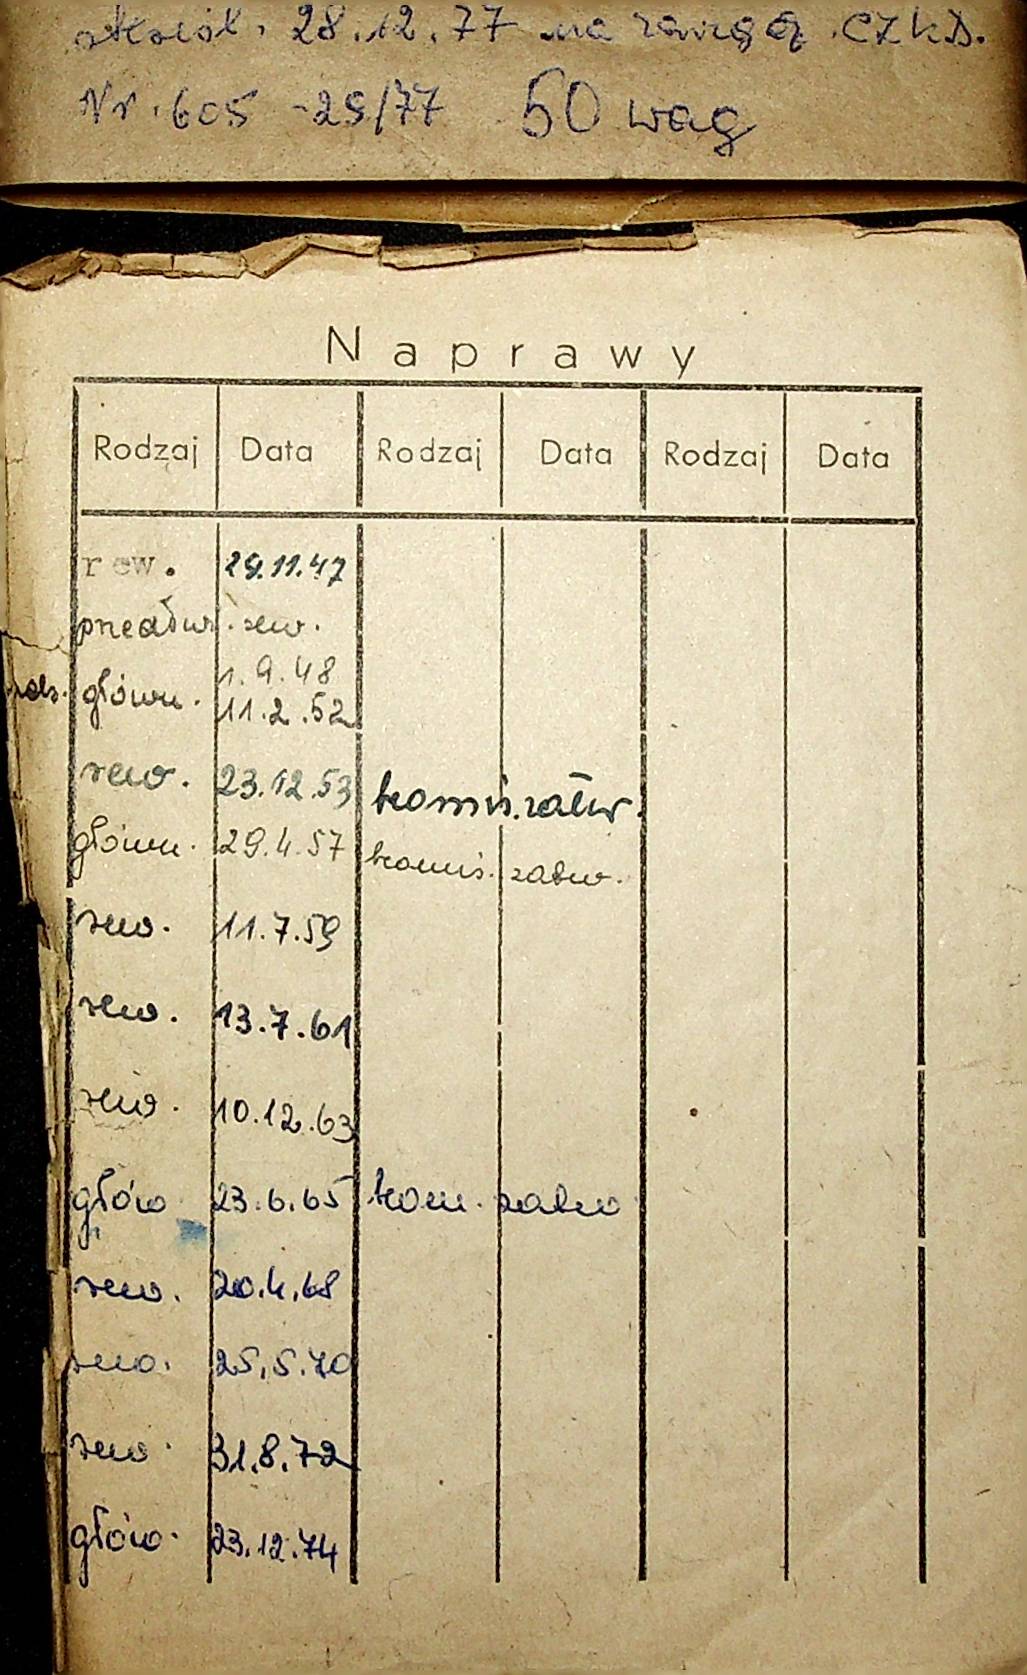 28.12.77 na CZKD.
Nr. 605 -25/77 50 wag
Naprawy
Rodzaj Data Rodzaj Data Rodzaj Data
rew. 29.11.47
rew.
1.9.48
główn. 11.2.52
rew. 23.12.53 komis. zatw.
główn. 29.4.57 komis. zatw.
rew. 11.7.59
rew. 13.7.61
rew. 10.12.63
głów 23.6.65 kom. zatw
rew. 20.4.68
rew. 25.5.70
rew. 31.8.72
głów. 23.12.74